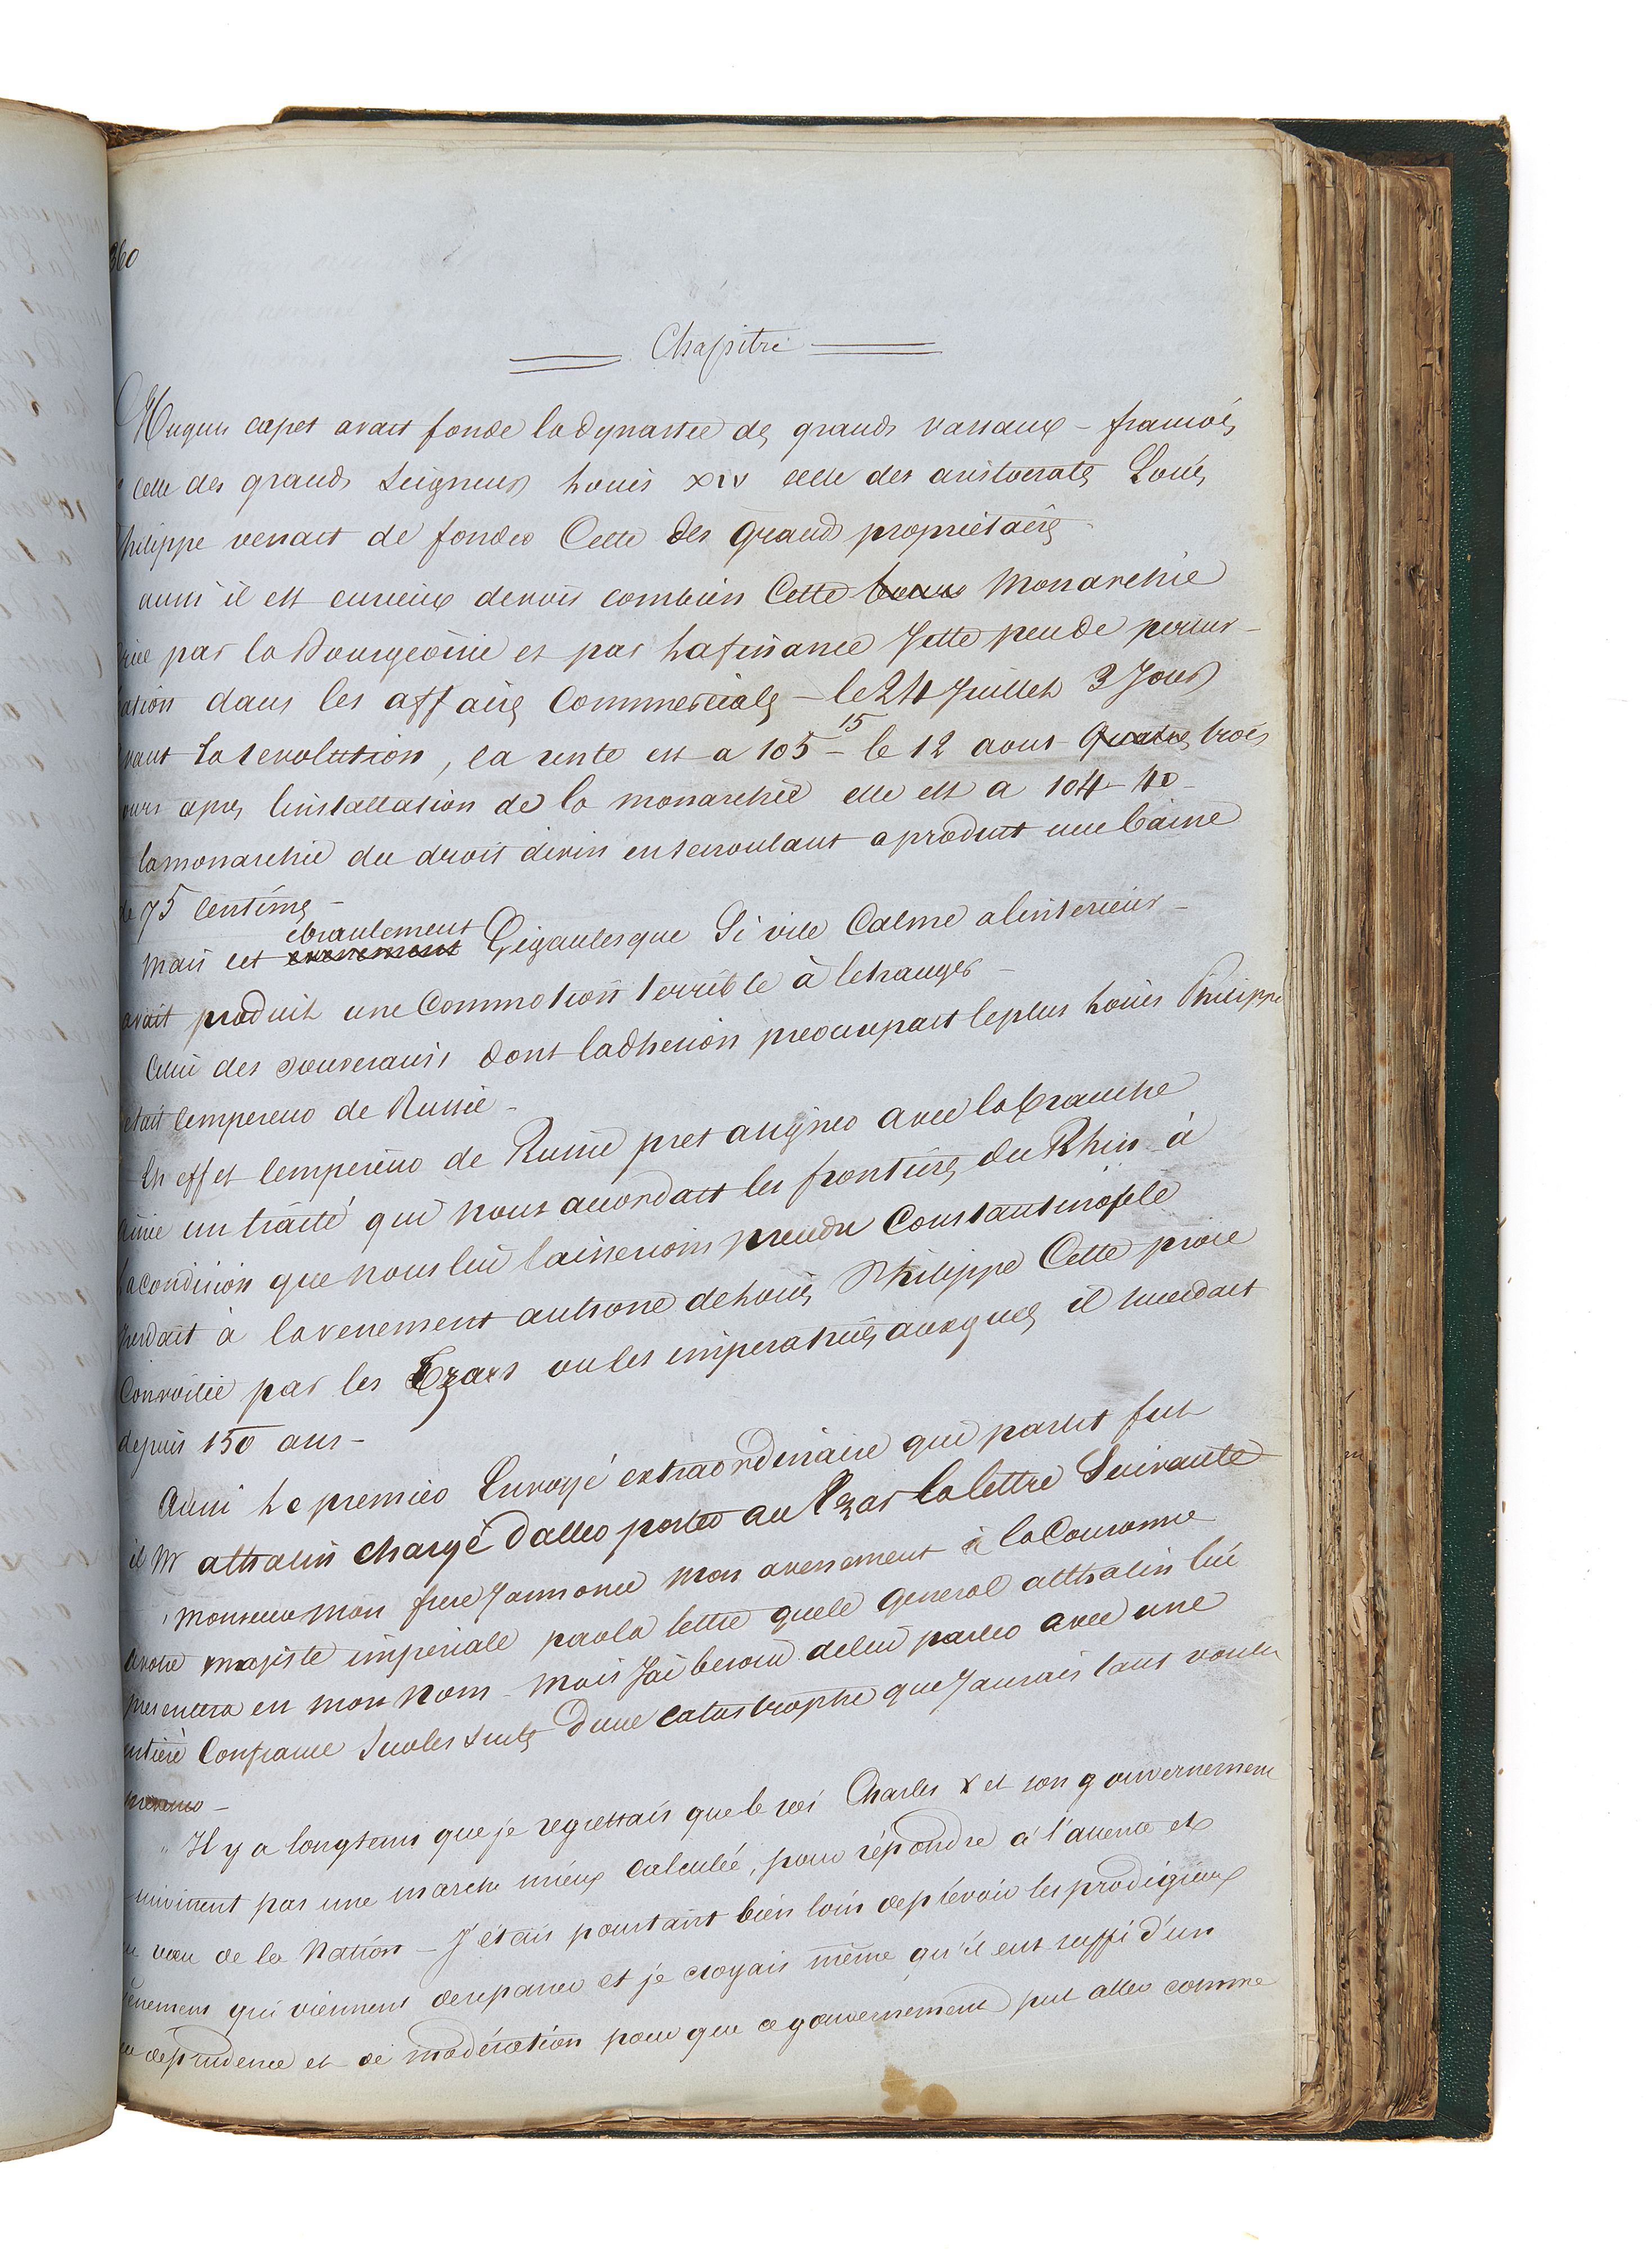 360
Chapitre
Hugues capet avait fondé la dynastie des grands vassaux – francois
celle des grands seigneurs Louis XIV celle des aristocrates Louis
Philippe venait de fonder celle des grands propriétaires
aussi il est curieux de voir combien cette Monarchie
par la Bourgeoisie et par la finance jette peu de pertur-
ation dans les affaires commerciales – le 24 Juillet 3 Jours
vant la revolution, la rente est a 105 – 15 le 12 aout quatre trois
ours apres linstallation de la monarchie elle est a 104 – 40 –
la monarchie du droit divin en secroulant a produit une baisse
de 75 centimes –
ebranlement
Mais cet evenement Gigantesque si vite calme a linterieur –
avait produit une commotion terrible à letranger –
Celui des souverains dont ladhesion préoccupait le plus Louis Philippe
était lempereur de Russie –
En effet lempereur de Russie pret a signer avec la branche
ainée un traité qui nous accordait les frontieres du Rhin à
la condition que nous lui laisserions prendre Constantinople
perdait à lavenement au trone de Louis Philippe Cette proie
convoitée par les Czars ou les imperatrices auxquels il succedait
depuis 150 ans –
Aussi le premier Envoyé extraordinaire qui partit fut
il Mr athalin chargé daller porter au Czar la lettre Suivante
Monsieur mon frere Jannonce mon avenement à la Couronne
a votre majesté imperiale par la lettre que le General atthalin lui
presentera en mon nom – Mais Jai besoin de lui parler avec une
entière confiance sur les suites dune catastrophe que Jaurais tant voulu
prevenir –
" Il y a longtems que je regrettais que le roi Charles X et son gouvernement
suivissent pas une marche mieux calculée, pour répondre à l'attente et
au vœu de la Nation – J'étais pourtant bien loin de prévoir les prodigieux
évenemens qui viennent de se passer et je croyais même qu'il eut suffi d'un
de prudence et de modération pour que ce gouvernement put aller comme